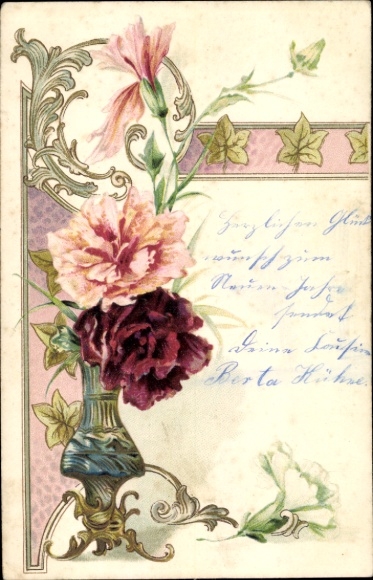 Herzlichen Glück
wunsch zum
Neuen Jahr
sendet
Deine Cousine
Berta Hühne.